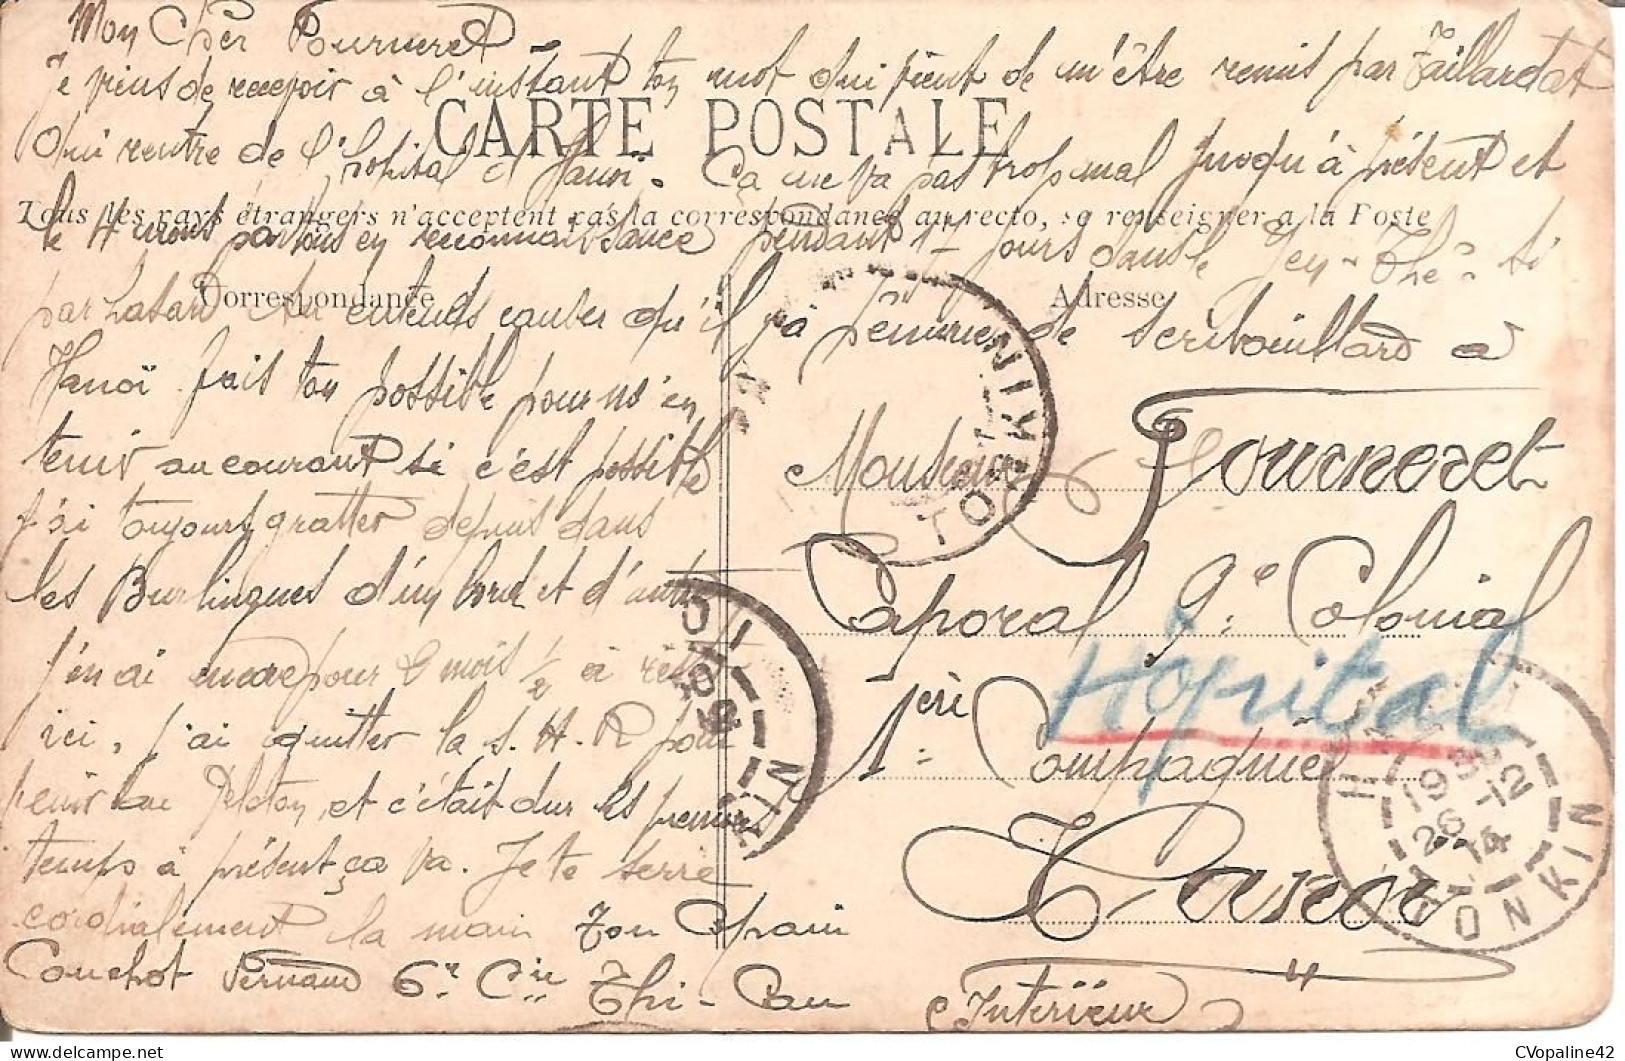 Mon Cher Fourneret
Je viens de recevoir à l'instant ton mot qui vient de m'être remis par Taillardat
CARTE POSTALE
qui rentre de l'hopital d'Hanoï. Ça me va pas trop mal jusqu'à présent et
Tous les pays étrangers n'acceptent pas la correspondance au recto, se renseigner a la Poste
le 4 nous partons en reconnaissance pendant 17 jours dans le Yen-Thé. si
Correspondance
Adresse
par hasard tu entends causer qu'il y à pénurie de scribouillard a
Hanoï fais ton possible pour m'en
tenir au courant si c'est possible
j'ai toujours gratter depuis dans
les Burlingues d'un bord et d'autre
j'en ai encore pour 9 mois 1/2 à rester
ici, j'ai quitter la S.H.R pour
venir au Peloton, et c'était dur les premiers
temps à présent ça va. Je te serre
cordialement la main Ton Copain
Couchot Fernand 6e Cie Thi-Cau
Monsieur Fourneret
Caporal 9e Colonial
1ère Compagnie
Hôpital
Hanoï
Intérieur
TONKIN
TONKIN
HANOI
19
26-12
14
TONKIN
CVopaline42